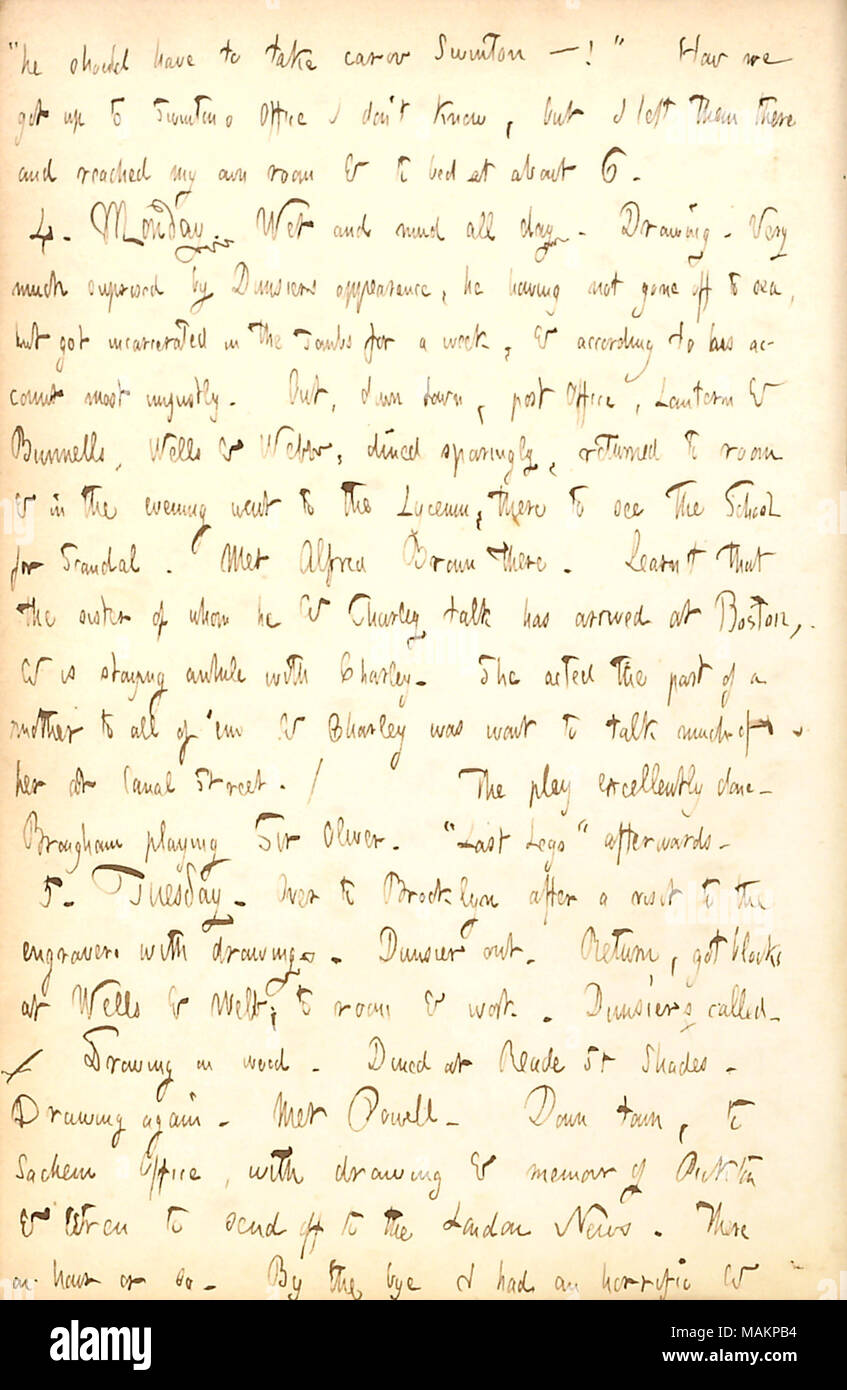 "he should have to take car ov Swinton —!" How we
got up to Swintons Office I don't know, but I left them there
and reached my own room & to bed at about 6.
4. Monday. Wet and mud all day. Drawing. Very
much suprised by Dunsiers appearance, he having not gone off to sea,
but got incarcerated in the Tombs for a week, & according to his ac-
count most unjustly. Out, down town, post Office, Lantern &
Bunnells, Wells & Webbs, dined sparingly, returned to room
& in the evening went to the Lyceum, there to see The School
for Scandal. Met Alfred Brown there. Learnt that
the sister of whom he & Charley talk has arrived at Boston,
& is staying awhile with Charley. She acted the part of a
mother to all of 'em & Charley was wont to talk much of
her at Canal Street. / The play excellently done.
Brougham playing Sir Oliver. "Last Legs" afterwards.
5. Tuesday. Over to Brooklyn after a visit to the
engravers with drawings. Dunsier out. Return, got blocks
at Wells & Webb; to room & work. Dunsiers called.
Drawing on wood. Dined at Reade St Shades.
Drawing again. Met Powell. Down town, to
Sachem Office, with drawing & memoir of Pickton
& Wren to send off to the London News. There
an hour or so. By the bye I had an horrific &
alamy
Image ID: MAKPB4
www.alamy.com